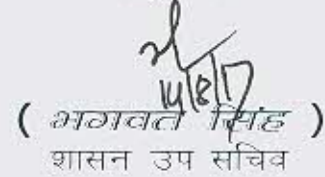 14/8/17
( भगवत सिंह )
शासन उप सचिव